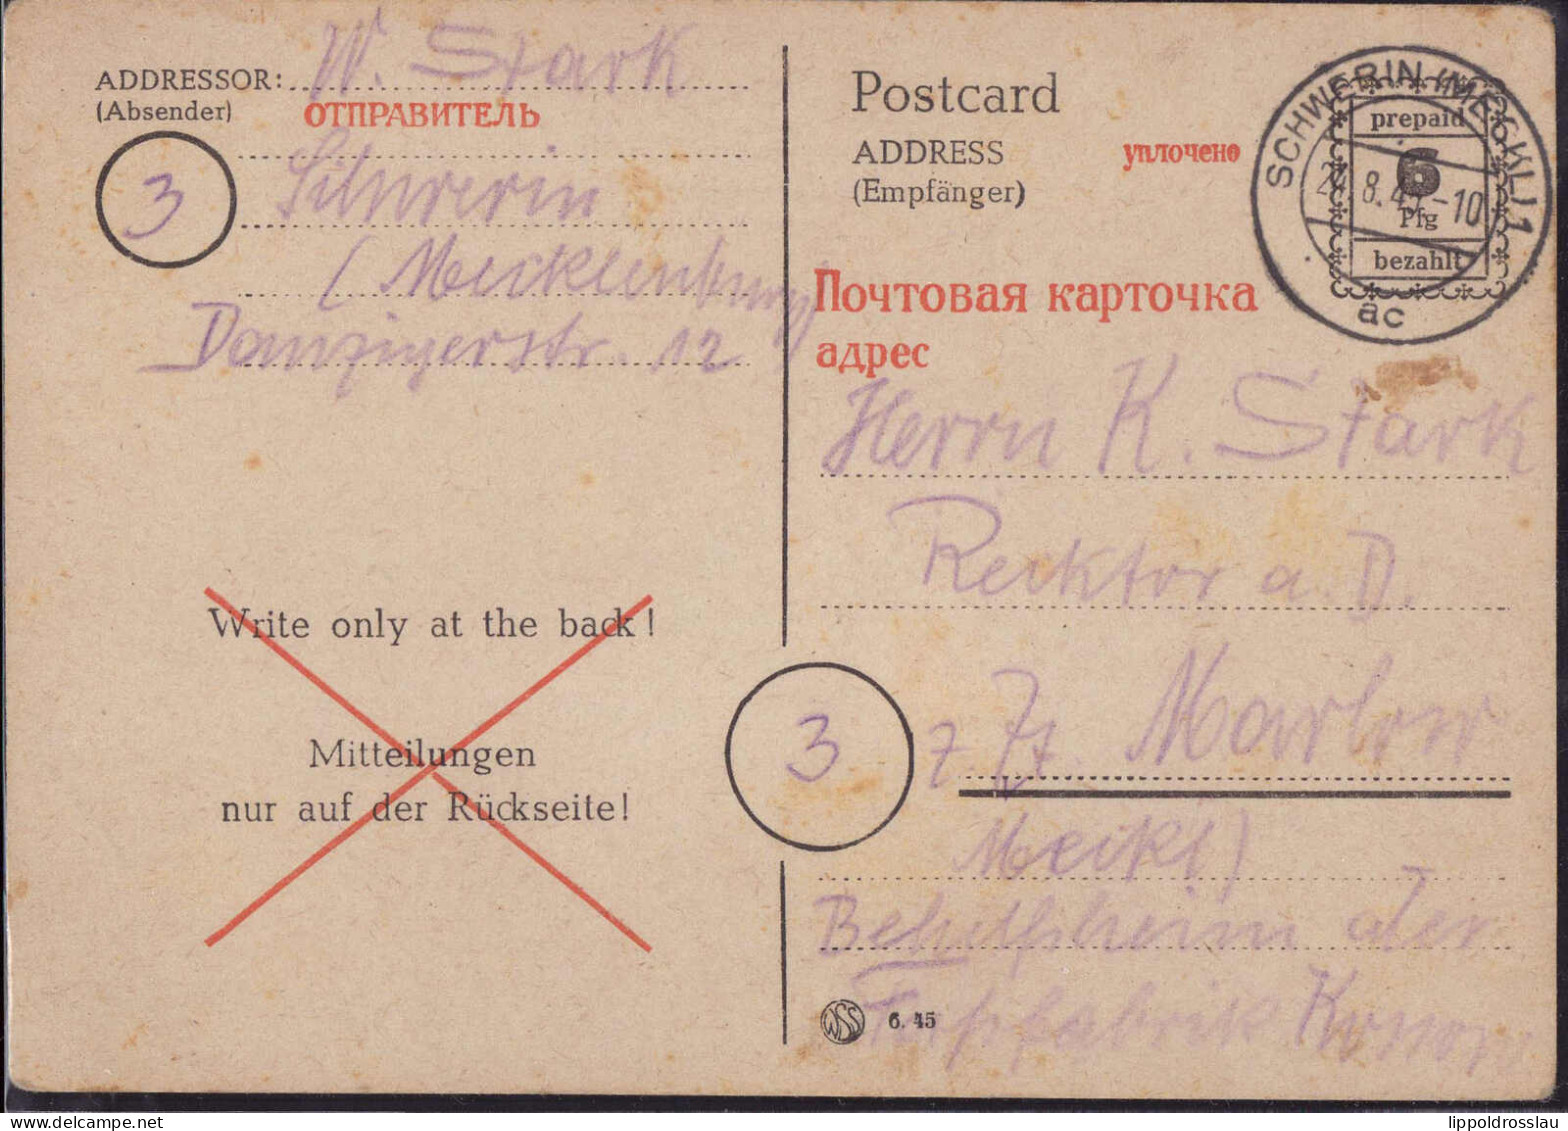 ADDRESSOR: W. Stark
(Absender) ОТПРАВИТЕЛЬ
3
Schwerin
(Mecklenburg)
Danzigerstr. 12
Write only at the back!
Mitteilungen
nur auf der Rückseite!
Postcard
ADDRESS уплочено
(Empfänger)
Почтовая карточка
адрес
SCHWERIN (MECKL) 1
8.45-10
ac
prepaid
6
Pfg
bezahlt
Herrn K. Stark
Recktor a. D.
3
z. Zt. Marlow
Meckl)
Behelfsheim der
Konow
WSS 6. 45
lippoldrosslau